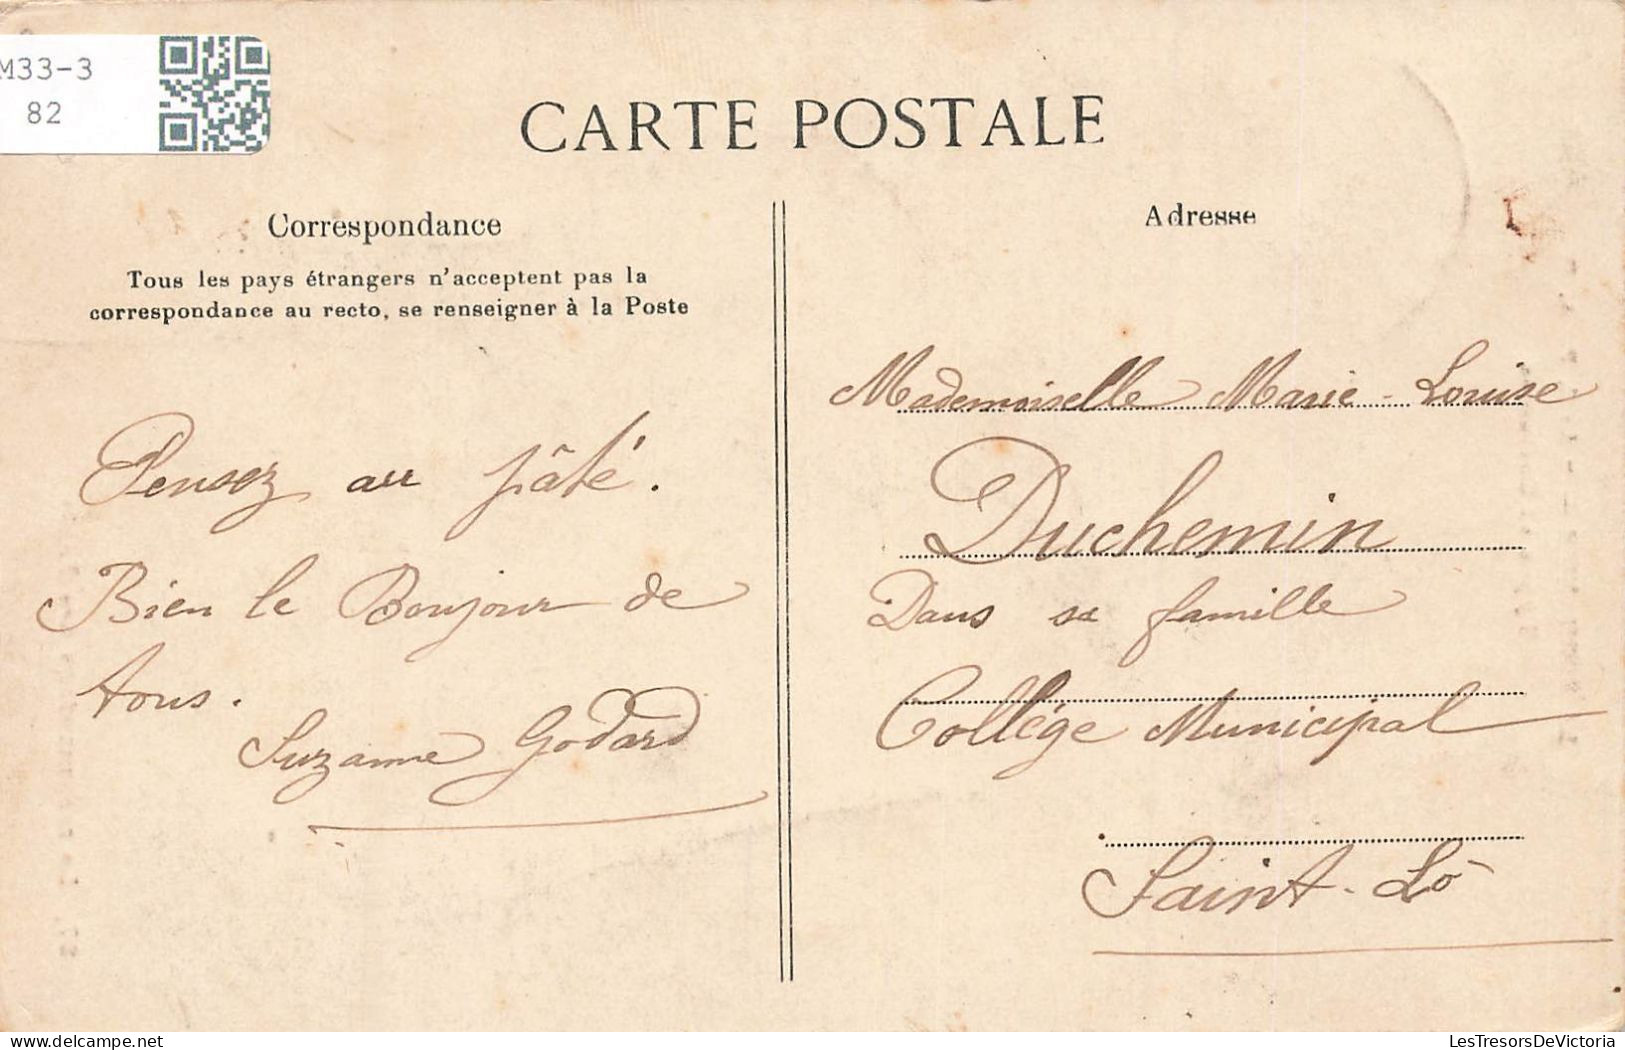 M33-3
82
CARTE POSTALE
Correspondance
Tous les pays étrangers n'acceptent pas la
correspondance au recto, se renseigner à la Poste
Pensez au pâté.
Bien le Bonjour de
tous.
Suzanne Godard
Adresse
Mademoiselle Marie-Louise
Duchemin
Dans sa famille
Collège Municipal
Saint-Lô
LesTresorsDeVictoria